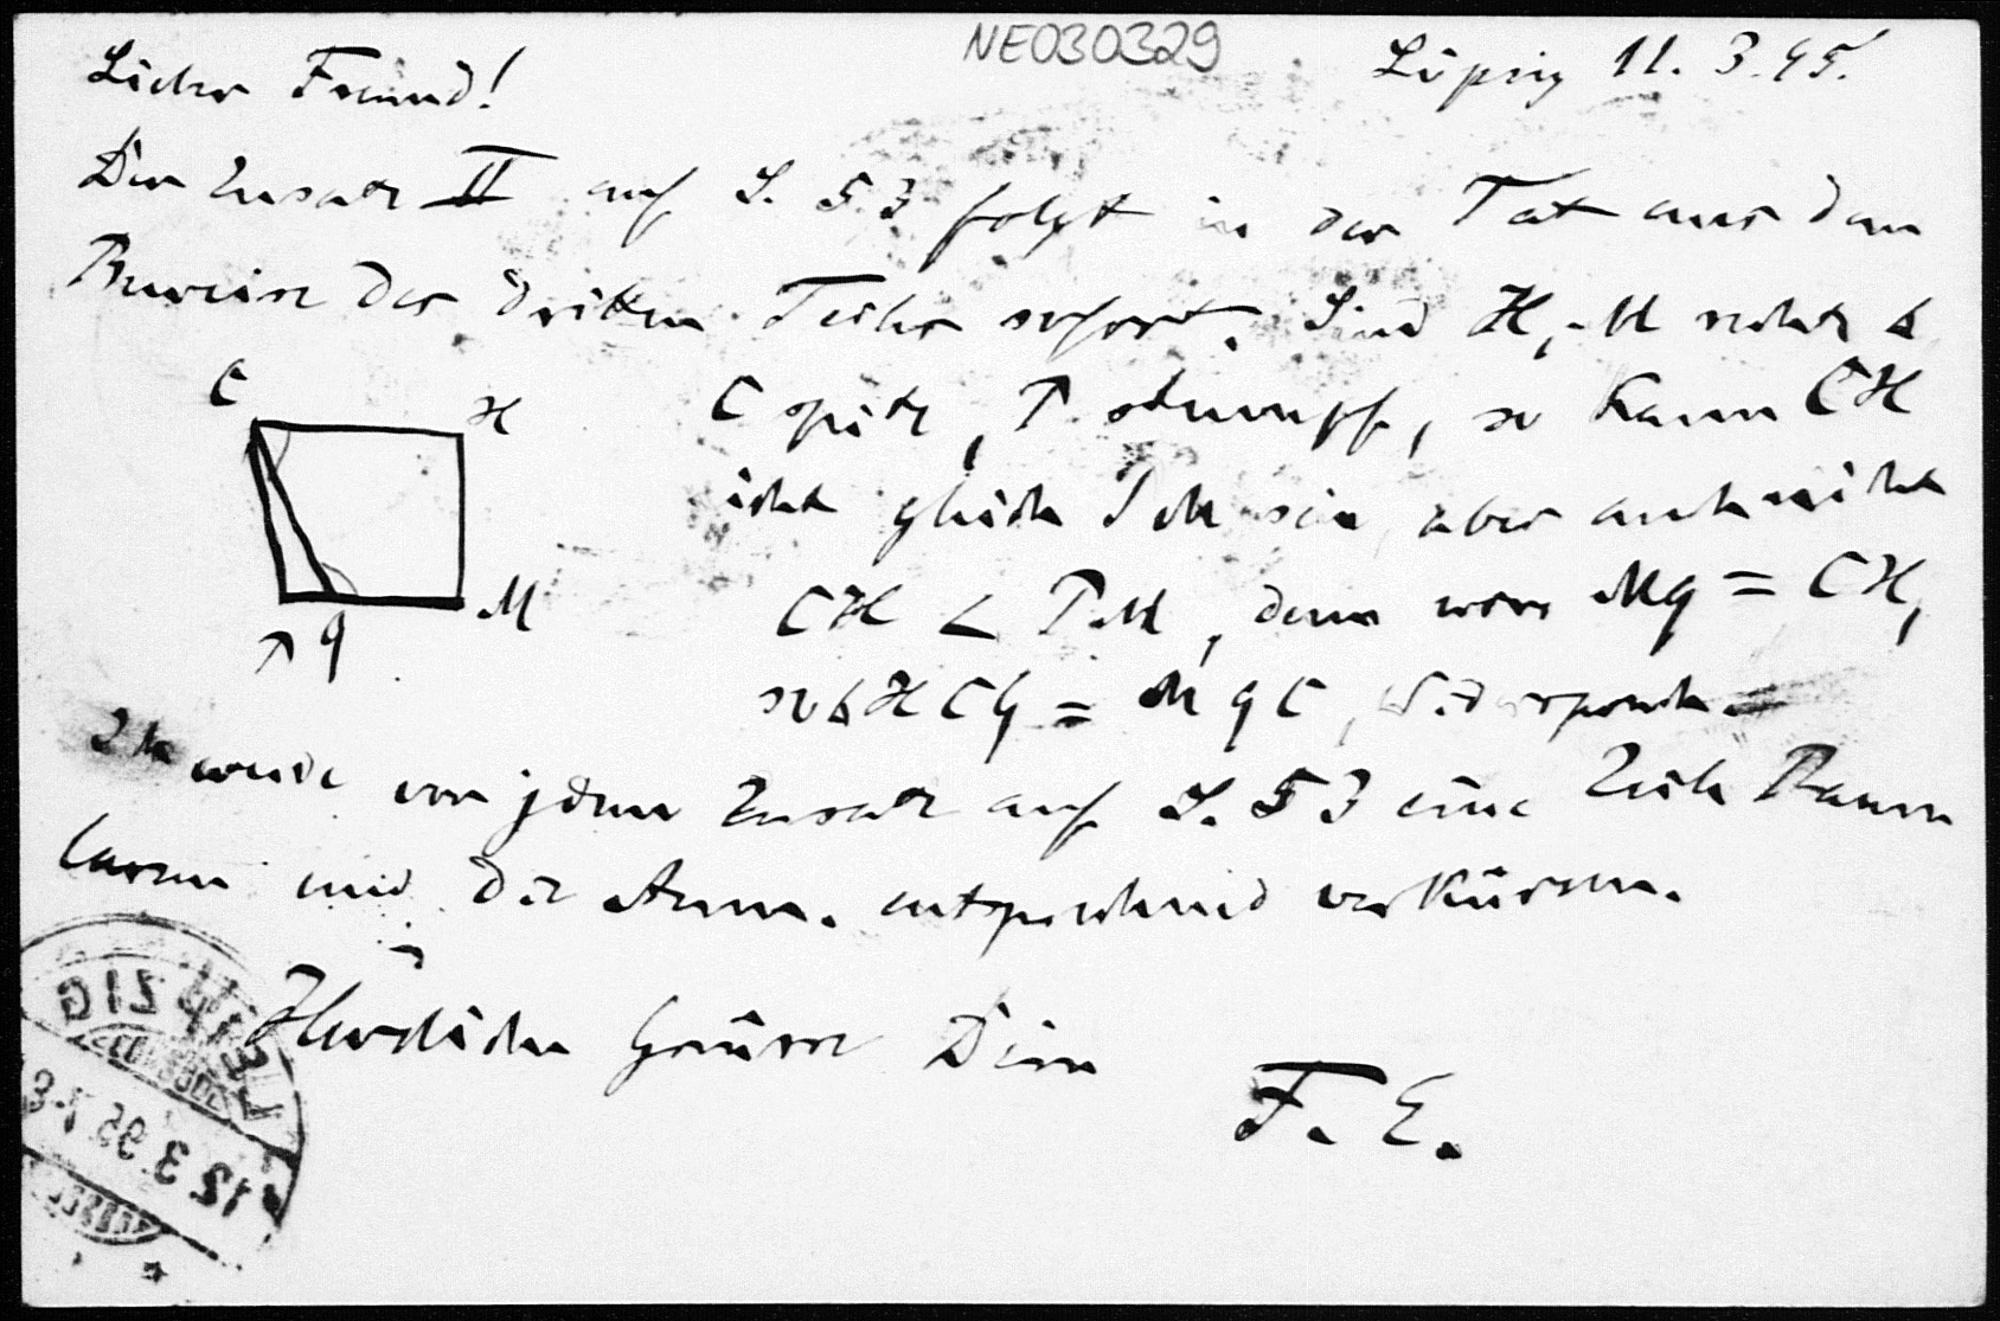 NE030329
Lieber Freund! Leipzig 11. 3. 95.
Der Zusatz II auf S. 53 folgt in der Tat aus dem
Beweise des dritten Teiles sofort. Sind H, M rechte
C spitz, P stumpf, so kann CH
nicht gleich PM sein, aber auch nicht
CH < PM, denn wäre Mq = CH,
so HCq = MqC, Widerspruch.
Ich werde vor jedem Zusatz auf S. 53 eine Zeile Raum
lassen und die Anm. entsprechend verkürzen.
Herzliche Grüsse Dein
F. E.
C H
P q M
LEIPZIG
12 3 95